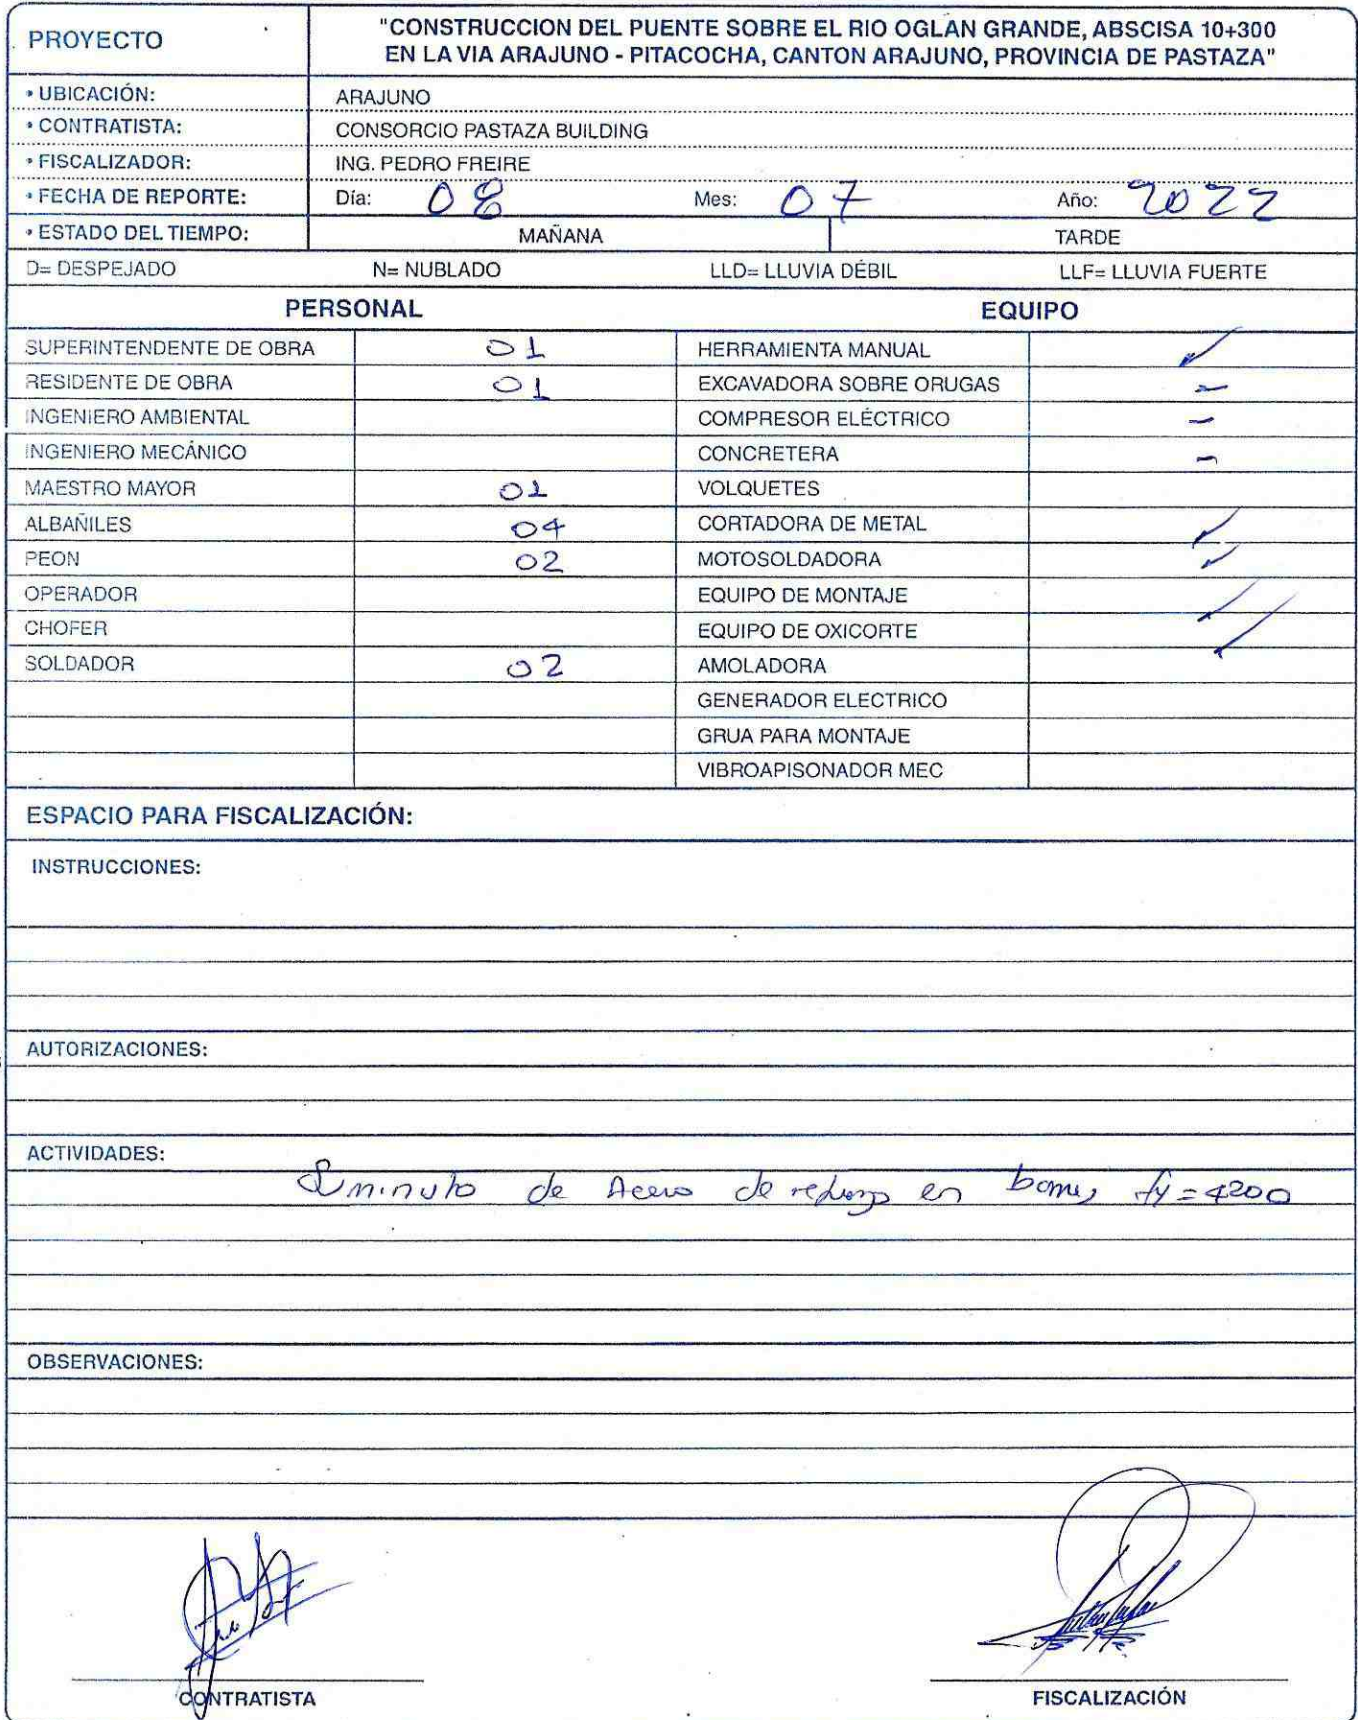 PROYECTO
"CONSTRUCCION DEL PUENTE SOBRE EL RIO OGLAN GRANDE, ABSCISA 10+300
EN LA VIA ARAJUNO - PITACOCHA, CANTON ARAJUNO, PROVINCIA DE PASTAZA"
• UBICACIÓN: ARAJUNO
• CONTRATISTA: CONSORCIO PASTAZA BUILDING
• FISCALIZADOR: ING. PEDRO FREIRE
• FECHA DE REPORTE: Día: 08 Mes: 07 Año: 2022
• ESTADO DEL TIEMPO: MAÑANA TARDE
D= DESPEJADO N= NUBLADO LLD= LLUVIA DÉBIL LLF= LLUVIA FUERTE
PERSONAL EQUIPO
SUPERINTENDENTE DE OBRA 01 HERRAMIENTA MANUAL ✓
RESIDENTE DE OBRA 01 EXCAVADORA SOBRE ORUGAS -
INGENIERO AMBIENTAL COMPRESOR ELÉCTRICO -
INGENIERO MECÁNICO CONCRETERA -
MAESTRO MAYOR 01 VOLQUETES
ALBAÑILES 04 CORTADORA DE METAL ✓
PEON 02 MOTOSOLDADORA ✓
OPERADOR EQUIPO DE MONTAJE ✓
CHOFER EQUIPO DE OXICORTE ✓
SOLDADOR 02 AMOLADORA
GENERADOR ELECTRICO
GRUA PARA MONTAJE
VIBROAPISONADOR MEC
ESPACIO PARA FISCALIZACIÓN:
INSTRUCCIONES:
AUTORIZACIONES:
ACTIVIDADES:
de Acero de refuerzo en fy=4200
OBSERVACIONES:
CONTRATISTA FISCALIZACIÓN